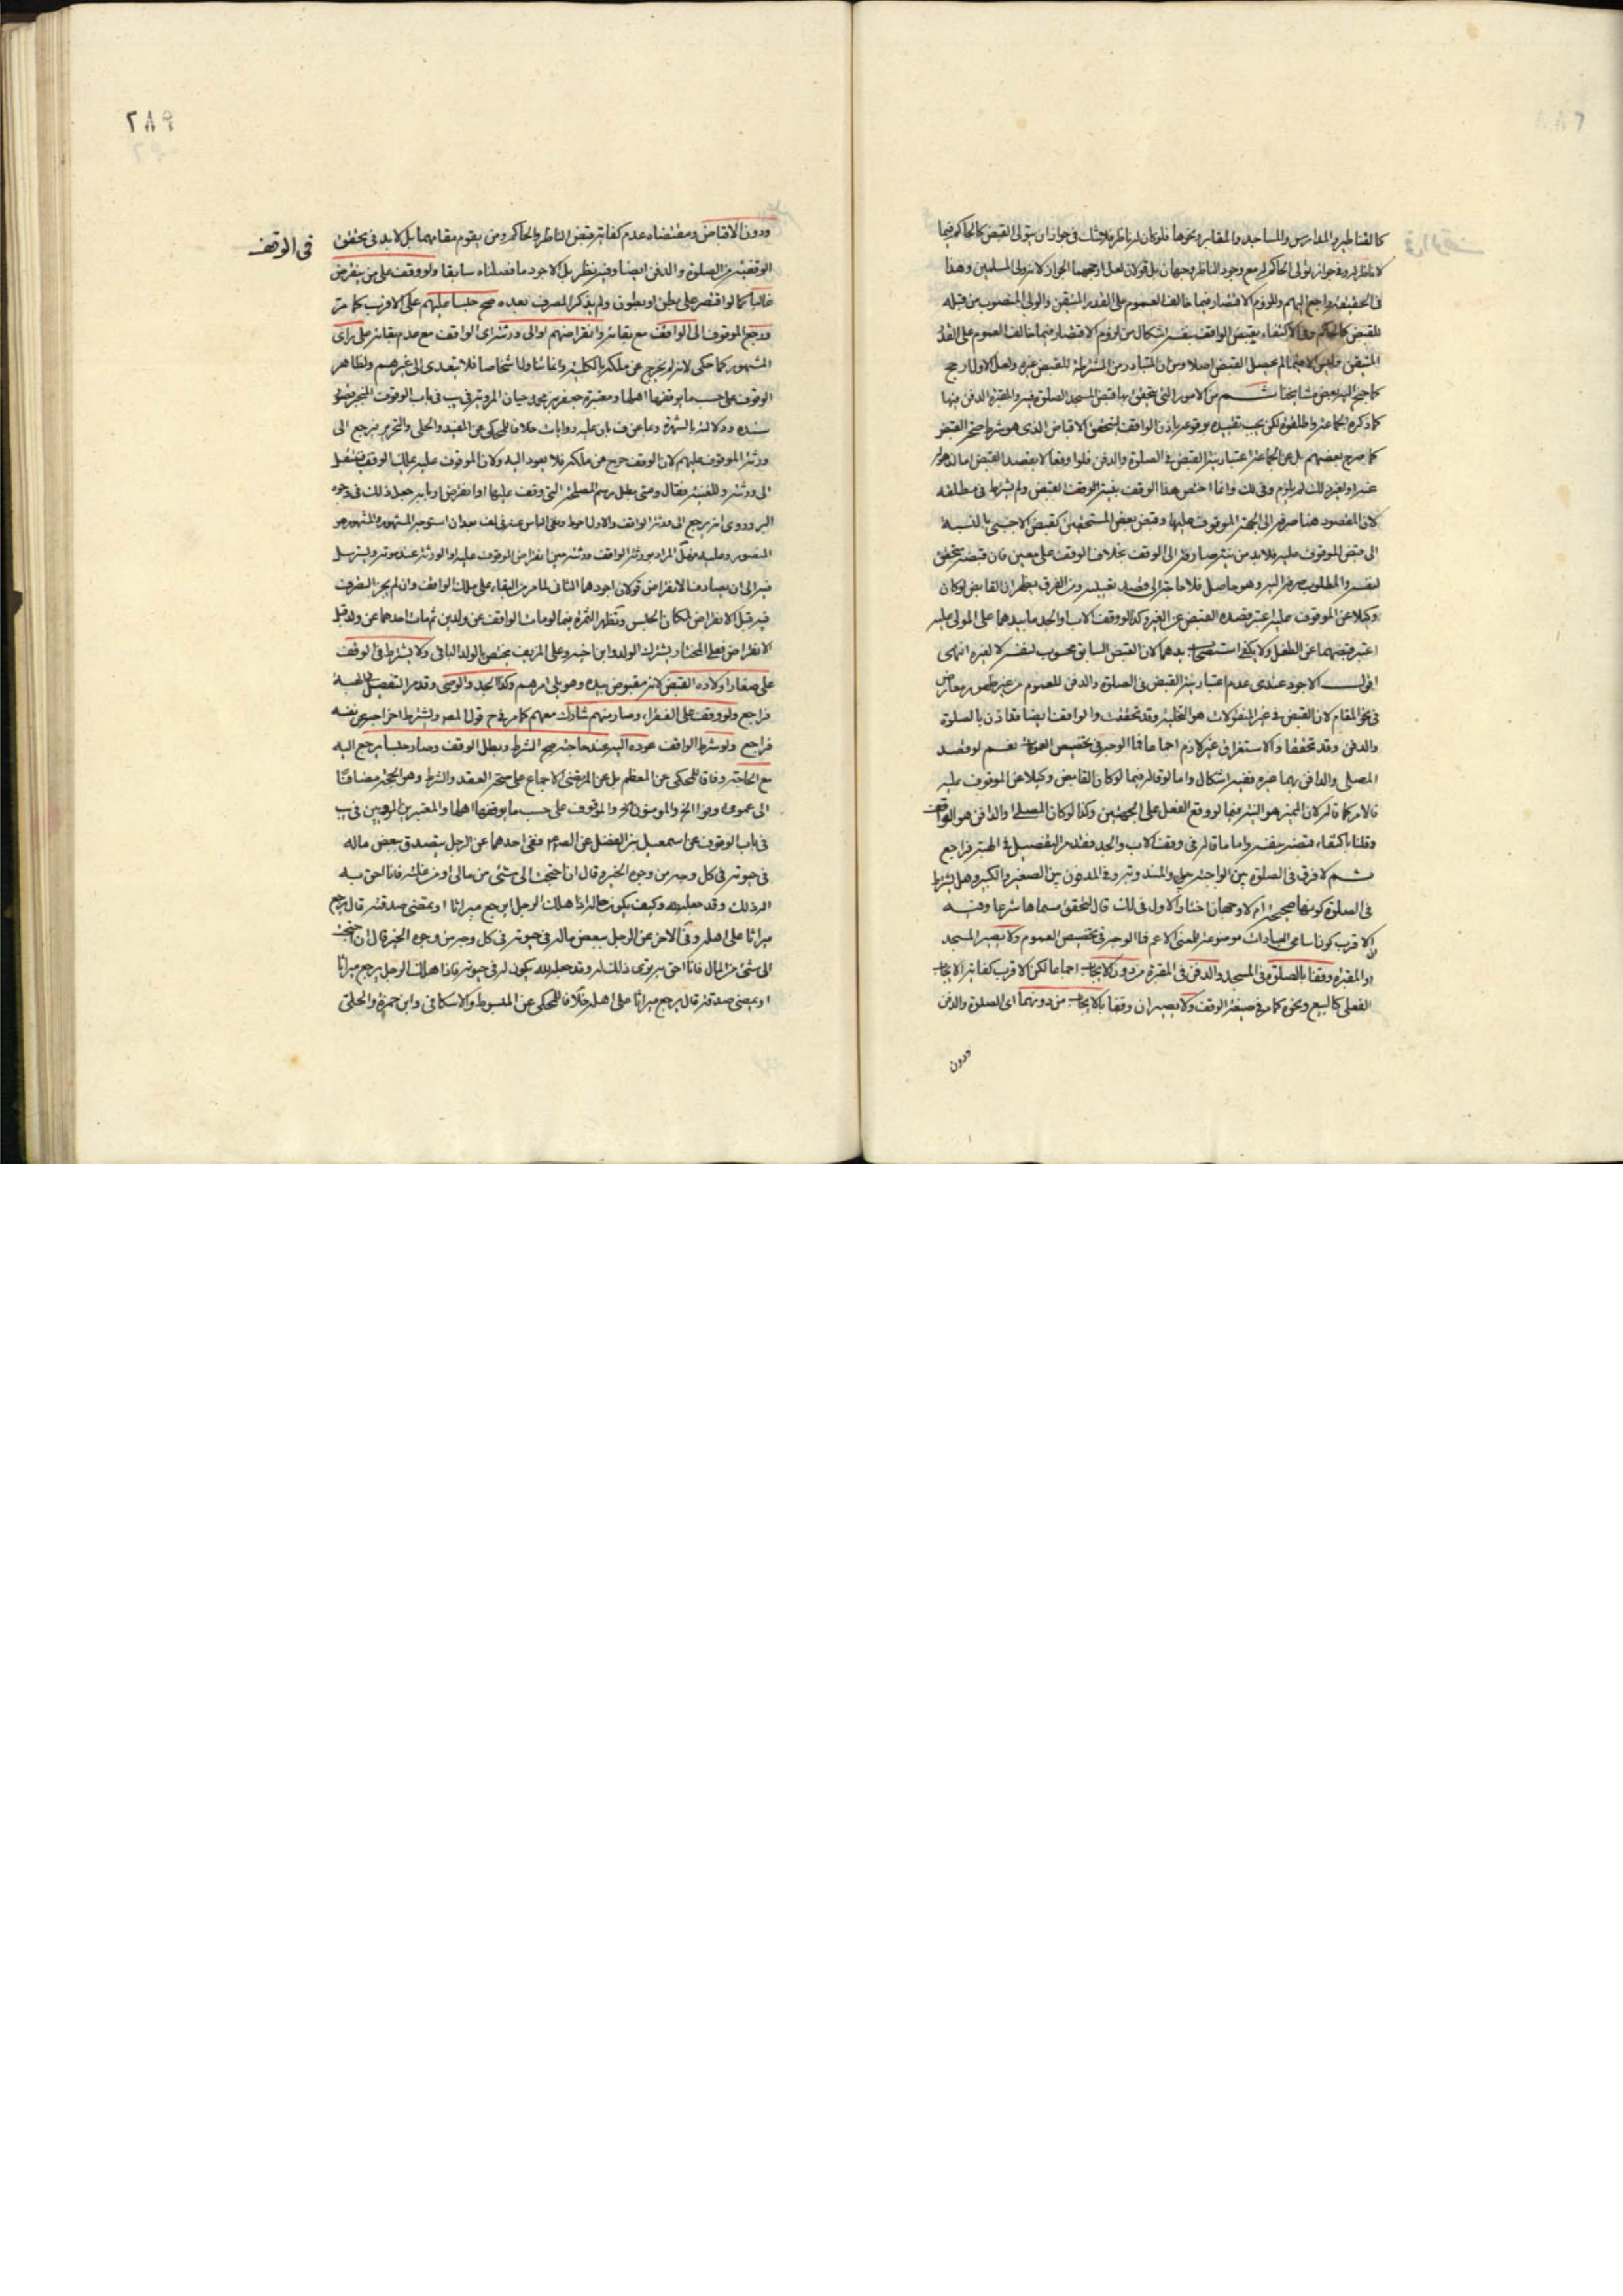 كالقناطير والمدارس والمساجد والمقابر ونحوها فلو كان له ناظر فلا شك في جواز ان يتولى القبض كالحاكم فيما
لا ناظر له وفي جواز تولى الحاكم له مع وجود الناظر وجهان بل قولان لعل ارجحهما الجواز لانه ولى المسلمين وهذا
في الحقيقة راجع اليهم ولزوم الاقتصار فيما خالف العموم على القدر المتيقن والولى المنصوب من قبله
للقبض كالحاكم وفي الاكتفاء بقبض الواقف بنفسه اشكال من لزوم الاقتصار فيما خالف العموم على القدر
المتيقن
كما جنح اليه بعض مشايخنا ثم من الامور التي يتحقق بها قبض المسجد الصلوة فيه والمقبرة الدفن فيها
كما ذكره الجماعة واطلقوه لكن يجب تقييده بوقوعه باذن الواقف ليتحقق الاقباض الذى هو شرط صحة القبض
كما صرح بعضهم بل عن الجماعة اعتبار نية القبض في الصلوة والدفن فلو اوقعا لا بقصد القبض اما لذهول
عنه او لغير ذلك لم يلزم وفي لك وانما اختص هذا الوقف بنية القبض ولم يشترط في مطلقه
لان المقصود هنا صرفه الى الجهة الموقوف عليها وقبض بعض المستحقين كقبض الاجنبى بالنسبة
الى قبض الموقوف عليه فلا بد من نية صارفة الى الوقف بخلاف الوقف على معين فان قبضه متحقق
لنفسه والمطلوب صرفه اليه وهو حاصل فلا حاجة الى قصد تعيينه ومن الفرق يظهر ان القابض لو كان
وكيلا عن الموقوف عليه اعتبر قصده القبض عن الغير وكذا لو وقف الاب او الجد ما بيدهما على المولى عليه
اعتبر قبضهما عن الطفل ولا يكفي استصحاب يدهما لان القبض السابق محسوب لنفسه لا لغيره انتهى
اقول الاجود عندى عدم اعتبار نية القبض في الصلوة والدفن للعموم من غير مخصص ومعارض
في نحو المقام لان القبض في غير المنقولات هو التخلية وقد تحققت والواقف ايضا قد اذن بالصلوة
والدفن وقد تحققا والاستغراق غير لازم اجماعا فما الوجه في تخصيص العمومات نعم لو قصد
المصلى والدافن بهما غيره ففيه اشكال واما لو قاله فيما لو كان القابض وكيلا عن الموقوف عليه
فالامر كما قاله لان المميز هو النية فيما لو وقع الفعل على الجهتين وكذا لو كان المصلى او الدافن هو الواقف
وقلنا باكتفاء قبضه بنفسه واما ما قاله في وقف الاب والجد فقد مر التفصيل في الهبة فراجع
ثم لا فرق في الصلوة بين الواجبة والمندوبة وفي المدفون بين الصغير والكبير وهل يشترط
في الصلوة كونها صحيحة ام لا وجهان اختار الاول في لك قال لتحقق مسماها شرعا وفيه
ان الاقرب كون اسامى العبادات موضوعة للمعنى الاعم فما الوجه في تخصيص العموم ولا يصير المسجد
او المقبرة وقفا بالصلوة في المسجد والدفن في المقبرة من دون الايجاب اجماعا لكن الاقرب كفاية الايجاب
الفعلى كالبيع ونحوه كما مر في صيغة الوقف ولا يصيران وقفا بالايجاب من دونهما اى الصلوة والدفن
ودون
٢٨٩
في الوقف
ودون الاقباض ومقتضاه عدم كفاية قبض الناظر والحاكم ومن يقوم مقامهما بل لا بد في تحقق
الوقفية من الصلوة والدفن ايضا وفيه نظر بل الاجود ما فصلناه سابقا ولو وقف على من ينقرض
غالبا كما لو اقتصر على بطن او بطون ولم يذكر المصرف بعده صح حبسا عليهم على الاقرب كما مر
ورجع الموقوف الى الواقف مع بقائه وانقراضهم او الى ورثته اى الواقف مع عدم بقائه على راى
المشهور كما حكى لانه لم يخرج عن ملكه بالكلية وانما تناول اشخاصا فلا يتعدى الى غيرهم ولظاهر
الوقوف على حسب ما يوقفها اهلها ومعتبرة جعفر بن محمد حيان المروية في يب في باب الوقوف المنجبر ضعف
سنده ودلالته بالشهرة وعا عن ف بان عليه روايات خلافا للمحكى عن المفيد والحلى والتحرير فيرجع الى
ورثة الموقوف عليهم لان الوقف خرج عن ملكه فلا يعود اليه ولان الموقوف عليه يملك الوقف فينتقل
الى ورثته وللغنية فقال ومتى بطل رسم المصلحة التى وقف عليها او انقرض اربابه جعل ذلك في وجوه
البر وروى انه يرجع الى ورثة الواقف والاول احوط ونفى الباس عنه في لف بعد ان استوجه المشهور والمشهور هو
المنصور وعليه فهل المراد بورثة الواقف ورثته حين انقراض الموقوف عليه او الورثة عند موته ويسترسل
فيه الى ان يصادف الانقراض قولان اجودهما الثاني لما مر من البقاء على ملك الواقف وان لم يجز التصرف
فيه قبل الانقراض لمكان الحبس وتظهر الثمرة فيما لو مات الواقف عن ولدين ثم مات احدهما عن ولد قبل
الانقراض فعلى المختار يشترك الولد وابن اخيه وعلى المزيف يختص بالولد الباقى ولا يشترط في الوقف
على صغار اولاده القبض لانه مقبوض بيده وهو يلى امرهم وكذا الجد والوصى وقد مر التفصيل في الهبة
فراجع ولو وقف على الفقراء وصار منهم شارك معهم كما مر في ح قول المصر ويشترط اخراجه عن نفسه
فراجع ولو شرط الواقف عوده اليه عند حاجته صح الشرط وبطل الوقف وصار حبسا يرجع اليه
مع الحاجة وفاقا للمحكى عن المعظم بل عن المرتضى الاجماع على صحة العقد والشرط وهو الحجة مضافا
الى عموم اوفوا الخ والمؤمنون الخ والوقوف على حسب ما يوقفها اهلها والمعتبرين المرويين في يب
في باب الوقوف عن اسمعيل بن الفضل عن الصادق ففي احدهما عن الرجل يتصدق ببعض ماله
في حيوته في كل وجه من وجوه الخير وقال ان احتجت الى شئ من مالى او من غلته فانا احق به
اله ذلك وقد جعله لله وكيف يكون حاله اذا هلك الرجل ايرجع ميراثا او يمضى صدقة قال يرجع
ميراثا على اهله وفي الاخر عن الرجل ببعض ماله في حيوته في كل وجه من وجوه الخير قال ان احتجت
الى شئ من المال فانا احق به ترى ذلك له وقد جعله لله يكون له في حيوته فاذا هلك الرجل يرجع ميراثا
او يمضى صدقة قال يرجع ميراثا على اهله خلافا للمحكى عن المبسوط والاسكافى وابن حمزة والحلى